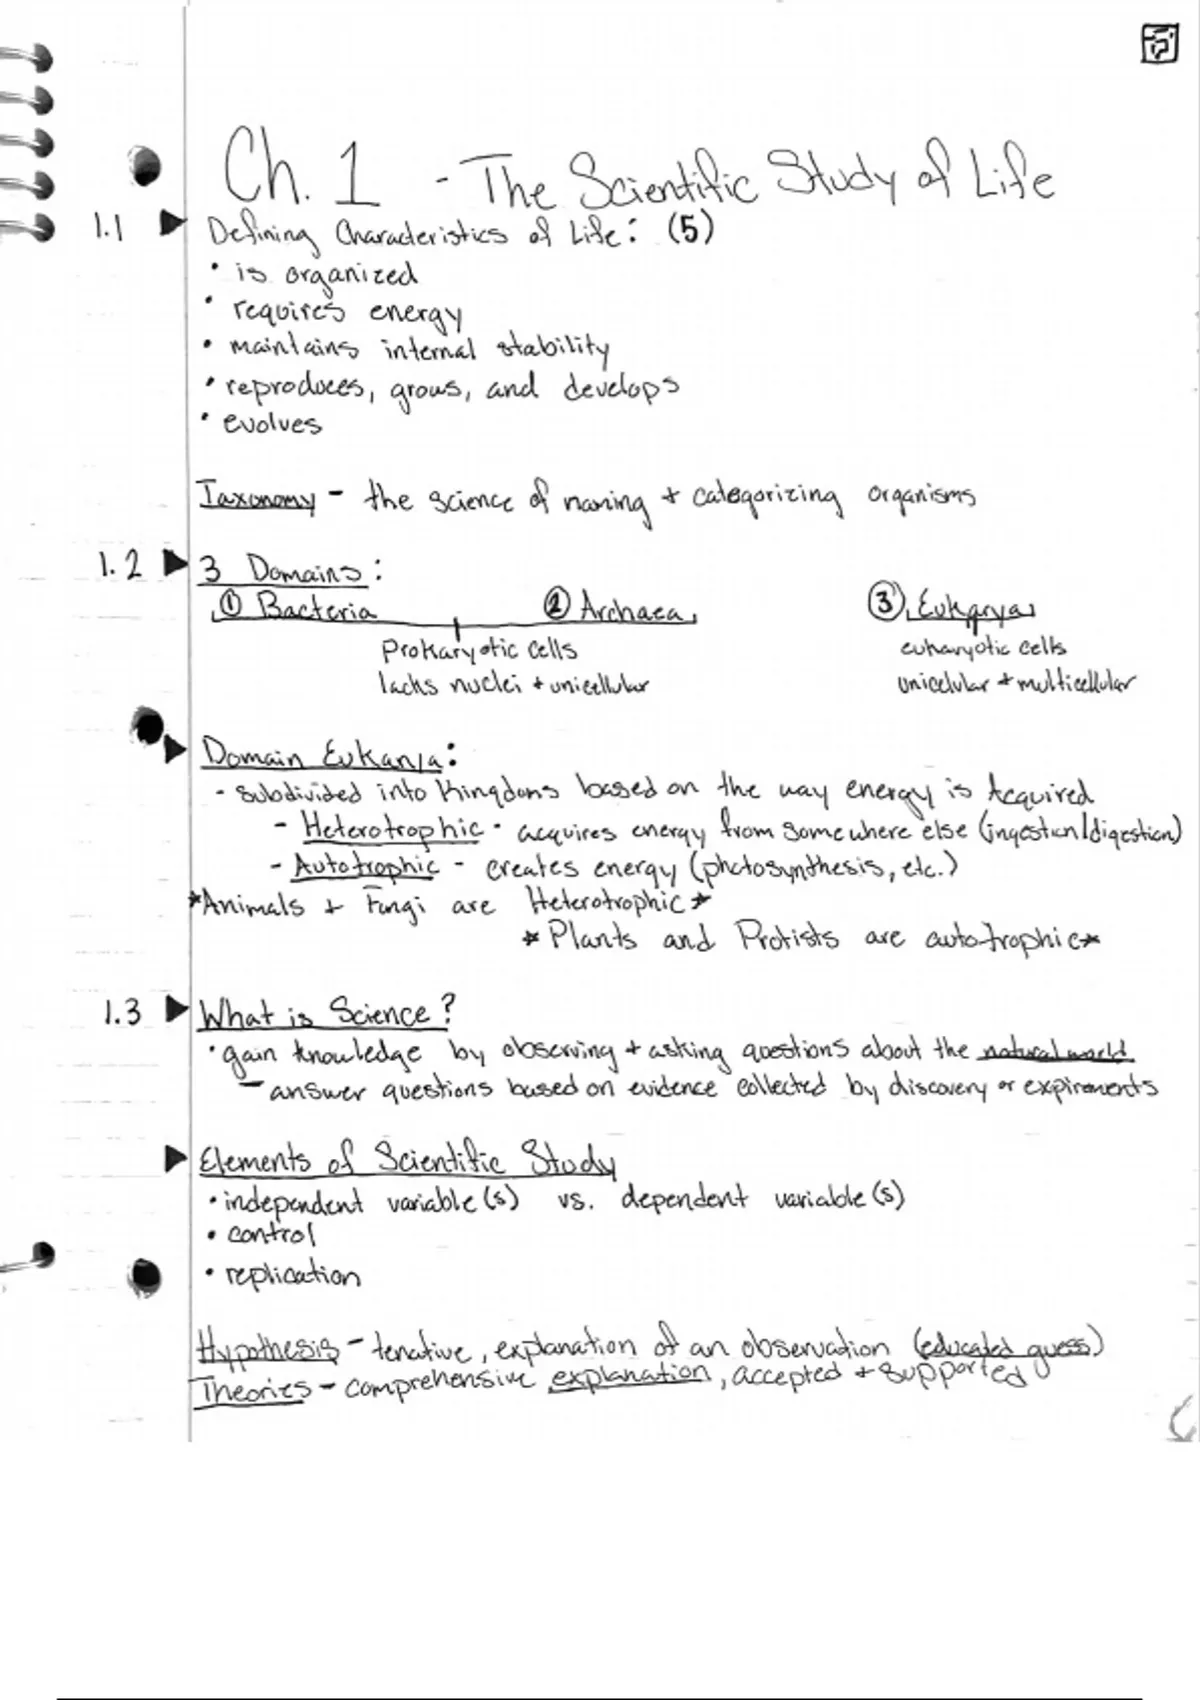 Ch. 1 - The Scientific Study of Life
1.1 ▶ Defining Characteristics of Life: (5)
• is organized
• requires energy
• maintains internal stability
• reproduces, grows, and develops
• evolves
Taxonomy - the science of naming + categorizing organisms
1.2 ▶ 3 Domains:
① Bacteria ② Archaea ③ Eukarya
Prokaryotic cells eukaryotic cells
lacks nuclei + unicellular unicelular + multicellular
▶ Domain Eukarya:
- subdivided into Kingdoms based on the way energy is Acquired
- Heterotrophic - acquires energy from somewhere else (ingestion/digestion)
- Autotrophic - creates energy (photosynthesis, etc.)
*Animals + Fungi are Heterotrophic*
* Plants and Protists are autotrophic*
1.3 ▶ What is Science?
• gain knowledge by observing + asking questions about the natural world
- answer questions based on evidence collected by discovery or expirements
▶ Elements of Scientific Study
• independent variable(s) vs. dependent variable(s)
• control
• replication
Hypothesis - tenative, explanation of an observation (educated guess)
Theories - comprehensive explanation, accepted + supported